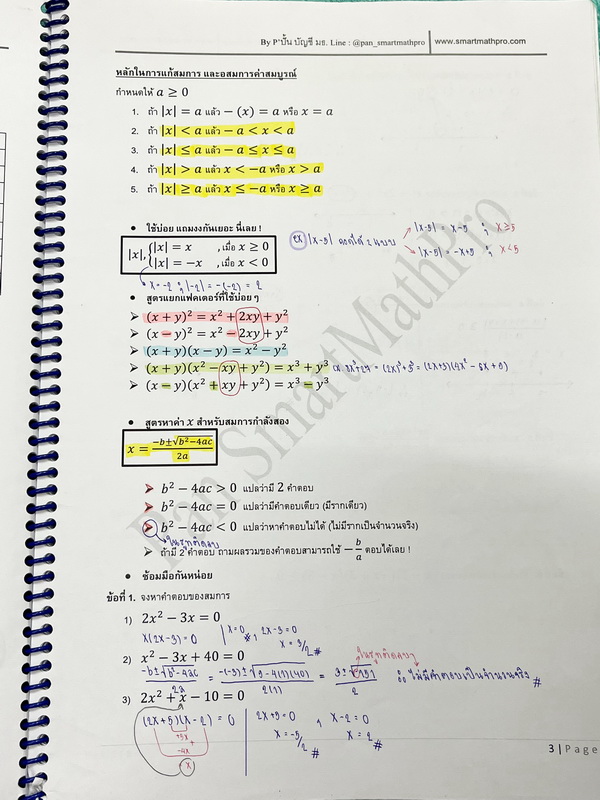 By P'ปั้น บัญชี มธ. Line : @pan_smartmathpro | www.smartmathpro.com
หลักในการแก้สมการ และอสมการค่าสมบูรณ์
กำหนดให้ a ≥ 0
1. ถ้า |x| = a แล้ว −(x) = a หรือ x = a
2. ถ้า |x| < a แล้ว −a < x < a
3. ถ้า |x| ≤ a แล้ว −a ≤ x ≤ a
4. ถ้า |x| > a แล้ว x < −a หรือ x > a
5. ถ้า |x| ≥ a แล้ว x ≤ −a หรือ x ≥ a
• ใช้บ่อย แถมงงกันเยอะ นี่เลย !
|x|, { |x| = x , เมื่อ x ≥ 0
|x| = −x , เมื่อ x < 0
ex |x-5| ถอดได้ 2 แบบ
|x-5| = x-5 ; x≥5
|x-5| = -x+5 ; x<5
x = -2 ; |-2| = -(-2) = 2
• สูตรแยกแฟคเตอร์ที่ใช้บ่อย ๆ
➢ (x + y)² = x² + 2xy + y²
➢ (x − y)² = x² − 2xy + y²
➢ (x + y)(x − y) = x² − y²
➢ (x + y)(x² − xy + y²) = x³ + y³ 8x³+27 = (2x)³+3³ = (2x+3)(4x² - 6x + 9)
➢ (x − y)(x² + xy + y²) = x³ − y³
• สูตรหาค่า x สำหรับสมการกำลังสอง
x = −b±√b²−4ac / 2a
➢ b² − 4ac > 0 แปลว่ามี 2 คำตอบ
➢ b² − 4ac = 0 แปลว่ามีคำตอบเดียว (มีรากเดียว)
➢ b² − 4ac < 0 แปลว่าหาคำตอบไม่ได้ (ไม่มีรากเป็นจำนวนจริง)
ในรูทติดลบ
➢ ถ้ามี 2 คำตอบ ถามผลรวมของคำตอบสามารถใช้ −b/a ตอบได้เลย !
• ซ้อมมือกันหน่อย
ข้อที่ 1. จงหาคำตอบของสมการ
1) 2x² − 3x = 0
x(2x-3) = 0 | x = 0 # , 2x-3 = 0
x = 3/2 #
2) x² − 3x + 40 = 0
ในรูทติดลบ
-b±√b²-4ac / 2a = -(-3)±√9-4(1)(40) / 2(1) = 3±√-151 / 2 ∴ ไม่มีคำตอบเป็นจำนวนจริง #
3) 2x² + x − 10 = 0
(2x+5)(x-2) = 0 | 2x+5 = 0 , x-2 = 0
+5x
-4x
x
x = -5/2 # x = 2 #
3 | Page
Pan SmartMathPro